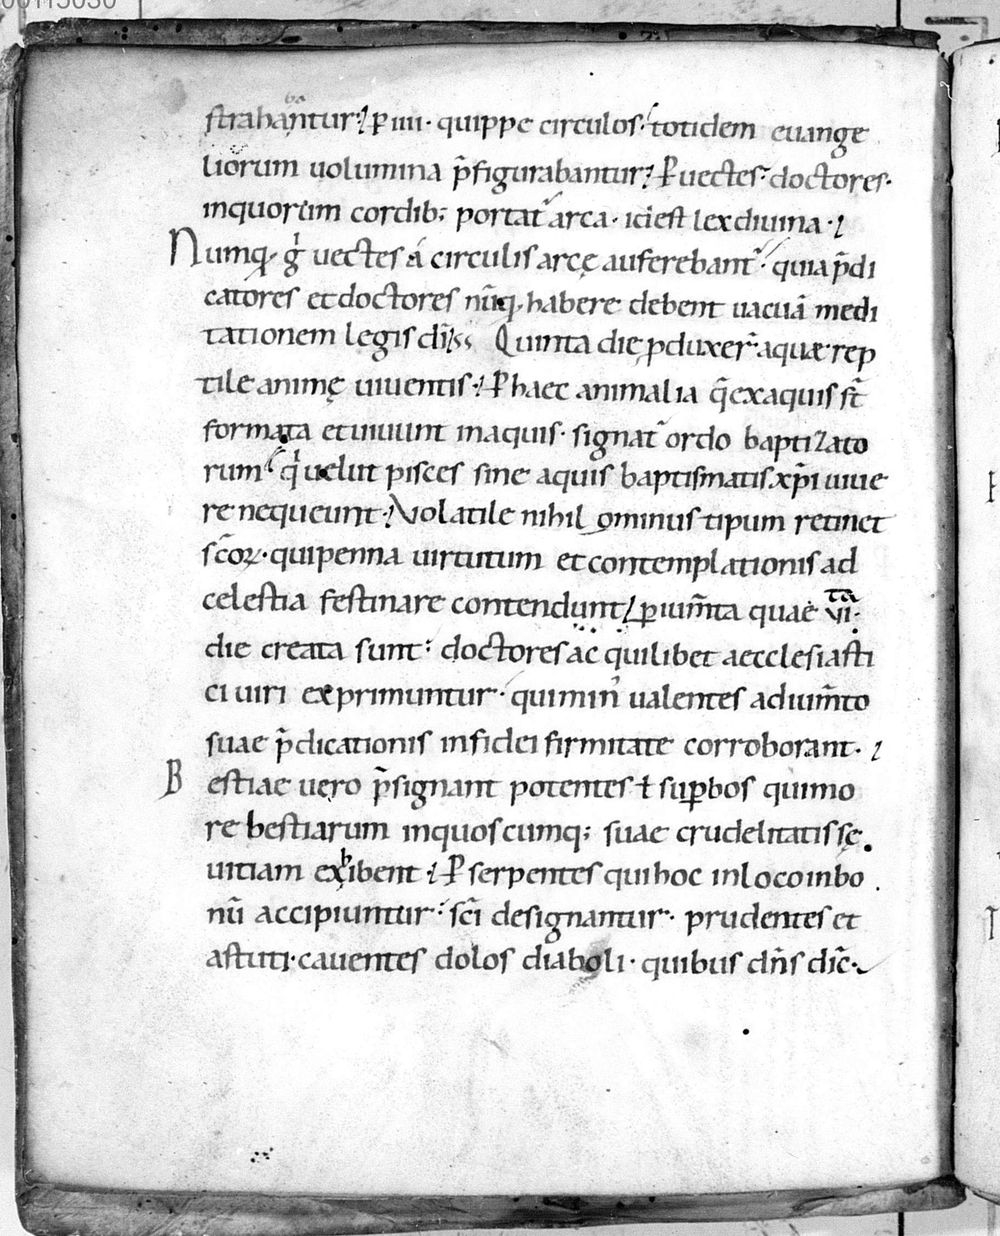 00115030
strahantur; P iiii· quippe circulos· totidem euange
liorum uolumina p̄figurabantur; P uectes doctores·
inquorum cordib; portat᷑ arca· idest lex diuina·
Numq̨ gͥ uectes á circulis arcę auferebant᷑· quia p̄di
catores et doctores nūq̨ habere debent uacuā medi
tationem legis di̅· Quinta die ꝓduxer̄ aquae rep
tile animę uiuentis· P haec animalia q̄ ex aquis st̄
formata et uiuunt in aquis· signat᷑ ordo baptizato
rum· qͥ uelut pisces sine aquis baptismatis xp̄i uiue
re nequeunt· Volatile nihil ominus tipum retinet
sc̄oꝝ· qui penna uirtutum et contemplationis ad
celestia festinare contendunt· ꝑ ium̄ta quae VI·ta
die creata sunt· doctores ac quilibet aecclesiasti
ci uiri exprimuntur· qui min᷑ ualentes adium̄to
suae p̄dicationis in fidei firmitate corroborant·
Bestiae uero p̄signant potentes ł suꝑbos qui mo
re bestiarum in quoscumq; suae crudelitatis sę
uitiam exhibent· P serpentes qui hoc in loco in bo
nū accipiuntur· sc̄i designantur· prudentes et
astuti· cauentes dolos diaboli· quibus dn̄s dic̄·